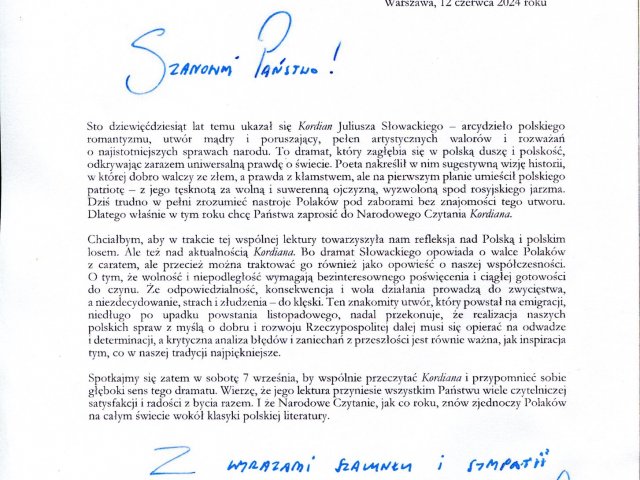 Warszawa, 12 czerwca 2024 roku
Szanowni Państwo!
Sto dziewięćdziesiąt lat temu ukazał się Kordian Juliusza Słowackiego – arcydzieło polskiego
romantyzmu, utwór mądry i poruszający, pełen artystycznych walorów i rozważań
o najistotniejszych sprawach narodu. To dramat, który zagłębia się w polską duszę i polskość,
odkrywając zarazem uniwersalną prawdę o świecie. Poeta nakreślił w nim sugestywną wizję historii,
w której dobro walczy ze złem, a prawda z kłamstwem, ale na pierwszym planie umieścił polskiego
patriotę – z jego tęsknotą za wolną i suwerenną ojczyzną, wyzwoloną spod rosyjskiego jarzma.
Dziś trudno w pełni zrozumieć nastroje Polaków pod zaborami bez znajomości tego utworu.
Dlatego właśnie w tym roku chcę Państwa zaprosić do Narodowego Czytania Kordiana.
Chciałbym, aby w trakcie tej wspólnej lektury towarzyszyła nam refleksja nad Polską i polskim
losem. Ale też nad aktualnością Kordiana. Bo dramat Słowackiego opowiada o walce Polaków
z caratem, ale przecież można traktować go również jako opowieść o naszej współczesności.
O tym, że wolność i niepodległość wymagają bezinteresownego poświęcenia i ciągłej gotowości
do czynu. Że odpowiedzialność, konsekwencja i wola działania prowadzą do zwycięstwa,
a niezdecydowanie, strach i złudzenia – do klęski. Ten znakomity utwór, który powstał na emigracji,
niedługo po upadku powstania listopadowego, nadal przekonuje, że realizacja naszych
polskich spraw z myślą o dobru i rozwoju Rzeczypospolitej dalej musi się opierać na odwadze
i determinacji, a krytyczna analiza błędów i zaniechań z przeszłości jest równie ważna, jak inspiracja
tym, co w naszej tradycji najpiękniejsze.
Spotkajmy się zatem w sobotę 7 września, by wspólnie przeczytać Kordiana i przypomnieć sobie
głęboki sens tego dramatu. Wierzę, że jego lektura przyniesie wszystkim Państwu wiele czytelniczej
satysfakcji i radości z bycia razem. I że Narodowe Czytanie, jak co roku, znów zjednoczy Polaków
na całym świecie wokół klasyki polskiej literatury.
Z wyrazami szacunku i sympatii